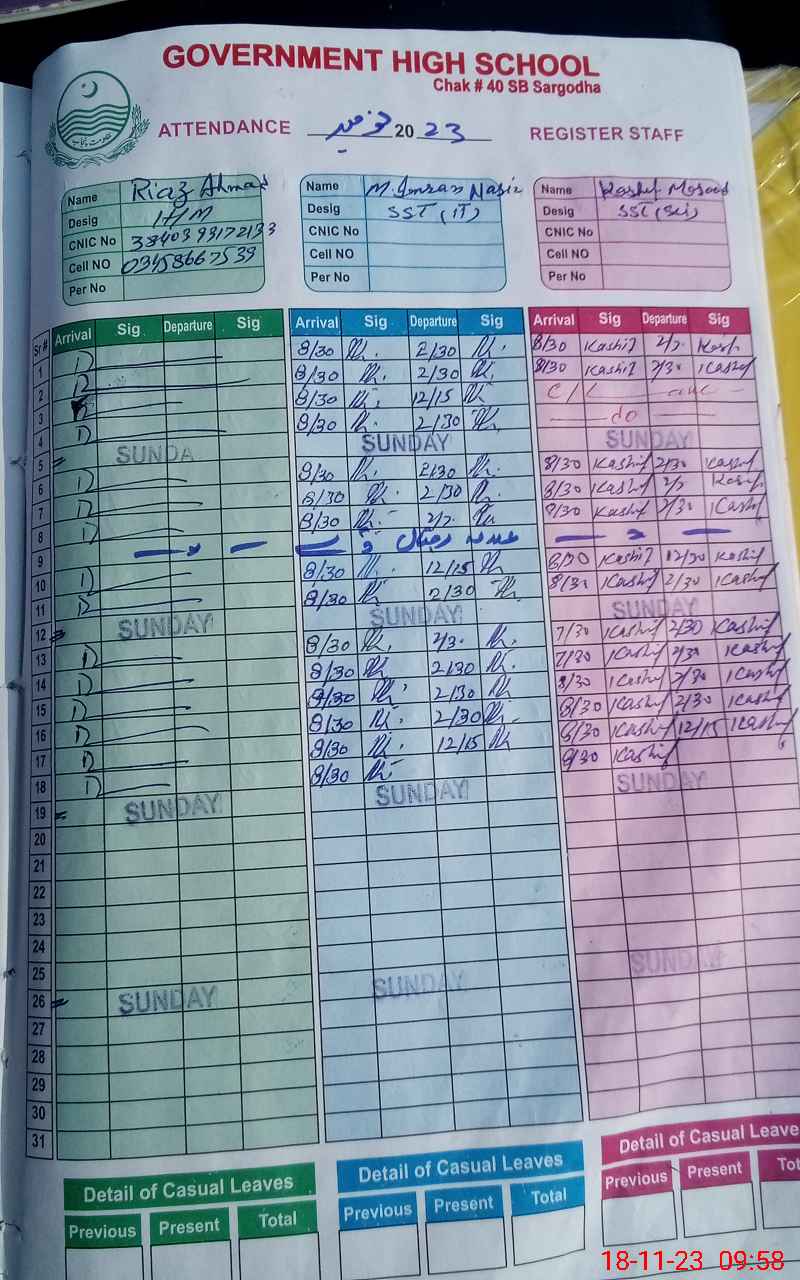 GOVERNMENT HIGH SCHOOL
Chak # 40 SB Sargodha
ATTENDANCE نومبر 2023 REGISTER STAFF
Name Riaz Ahmad Name M. Imran Nasir Name Kashif Masood
Desig H/M Desig SST (IT) Desig SST (Sci)
CNIC No CNIC No CNIC No
Cell NO 03458667539 Cell NO Cell NO
Per No Per No Per No
Sr # Arrival Sig Departure Sig Arrival Sig Departure Sig Arrival Sig Departure Sig
1 D 8/30 2/30 8/30 Kashif
2 D 8/30 2/30 8/30 Kashif 2/30 Kashif
3 8/30 12/15 C/L
4 D 8/30 2/30 do
5 SUNDA SUNDAY SUNDAY
6 D 8/30 2/30 8/30 Kashif 2/30 Kashif
7 D 8/30 2/30 8/30 Kashif Kashif
8 D 8/30 8/30 Kashif 2/30 Kashif
9
10 D 8/30 12/15 8/30 Kashif 12/30 Kashif
11 D 8/30 2/30 8/30 Kashif 2/30 Kashif
12 SUNDAY SUNDAY SUNDAY
13 D 8/30 2/30 7/30 Kashif 2/30 Kashif
14 D 8/30 2/30 7/30 Kashif 2/30 Kashif
15 D 8/30 2/30 8/30 Kashif 2/30 Kashif
16 D 8/30 2/30 8/30 Kashif 2/30 Kashif
17 D 8/30 12/15 8/30 Kashif 12/15 Kashif
18 D 8/30 8/30 Kashif
19 SUNDAY SUNDAY SUNDAY
20
21
22
23
24
25
26 SUNDAY SUNDAY SUNDAY
27
28
29
30
31
Detail of Casual Leaves Detail of Casual Leaves Detail of Casual Leave
Previous Present Total Previous Present Total Previous Present Tot
18-11-23 09:58